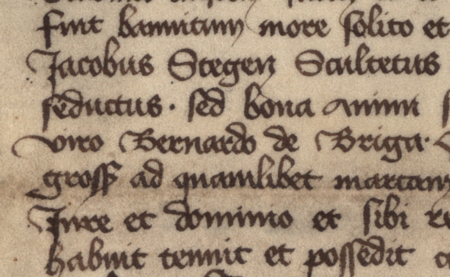 fuit bannitum more solito et
Jacobus Stegen Scultetus
seductus · sed bona animi
viro Bernardo de Briga ·
gross ad quamlibet marcam
Jure et dominio et sibi
habuit tenuit et possedit